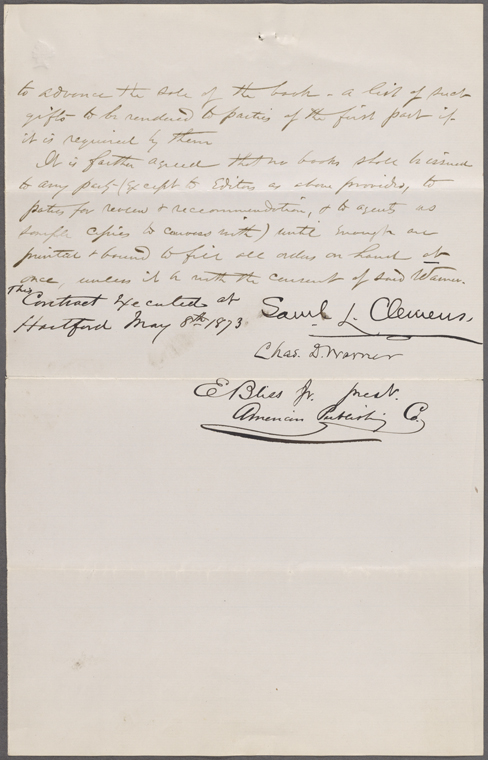 to advance the sale of the book - a list of such
gifts to be rendered to parties of the first part if
it is required by them
It is farther agreed that no books shall be issued
to any party (except to Editors as above provided, to
parties for review & reccommendation, & to agents as
sample copies to canvass with) until enough are
printed & bound to fill all orders on hand at
once, unless it be with the consent of said Warner.
This Contract Executed at
Hartford May 8th 1873
Saml L. Clemens.
Chas. D. Warner
E Bliss Jr. prest.
American Publishing Co.